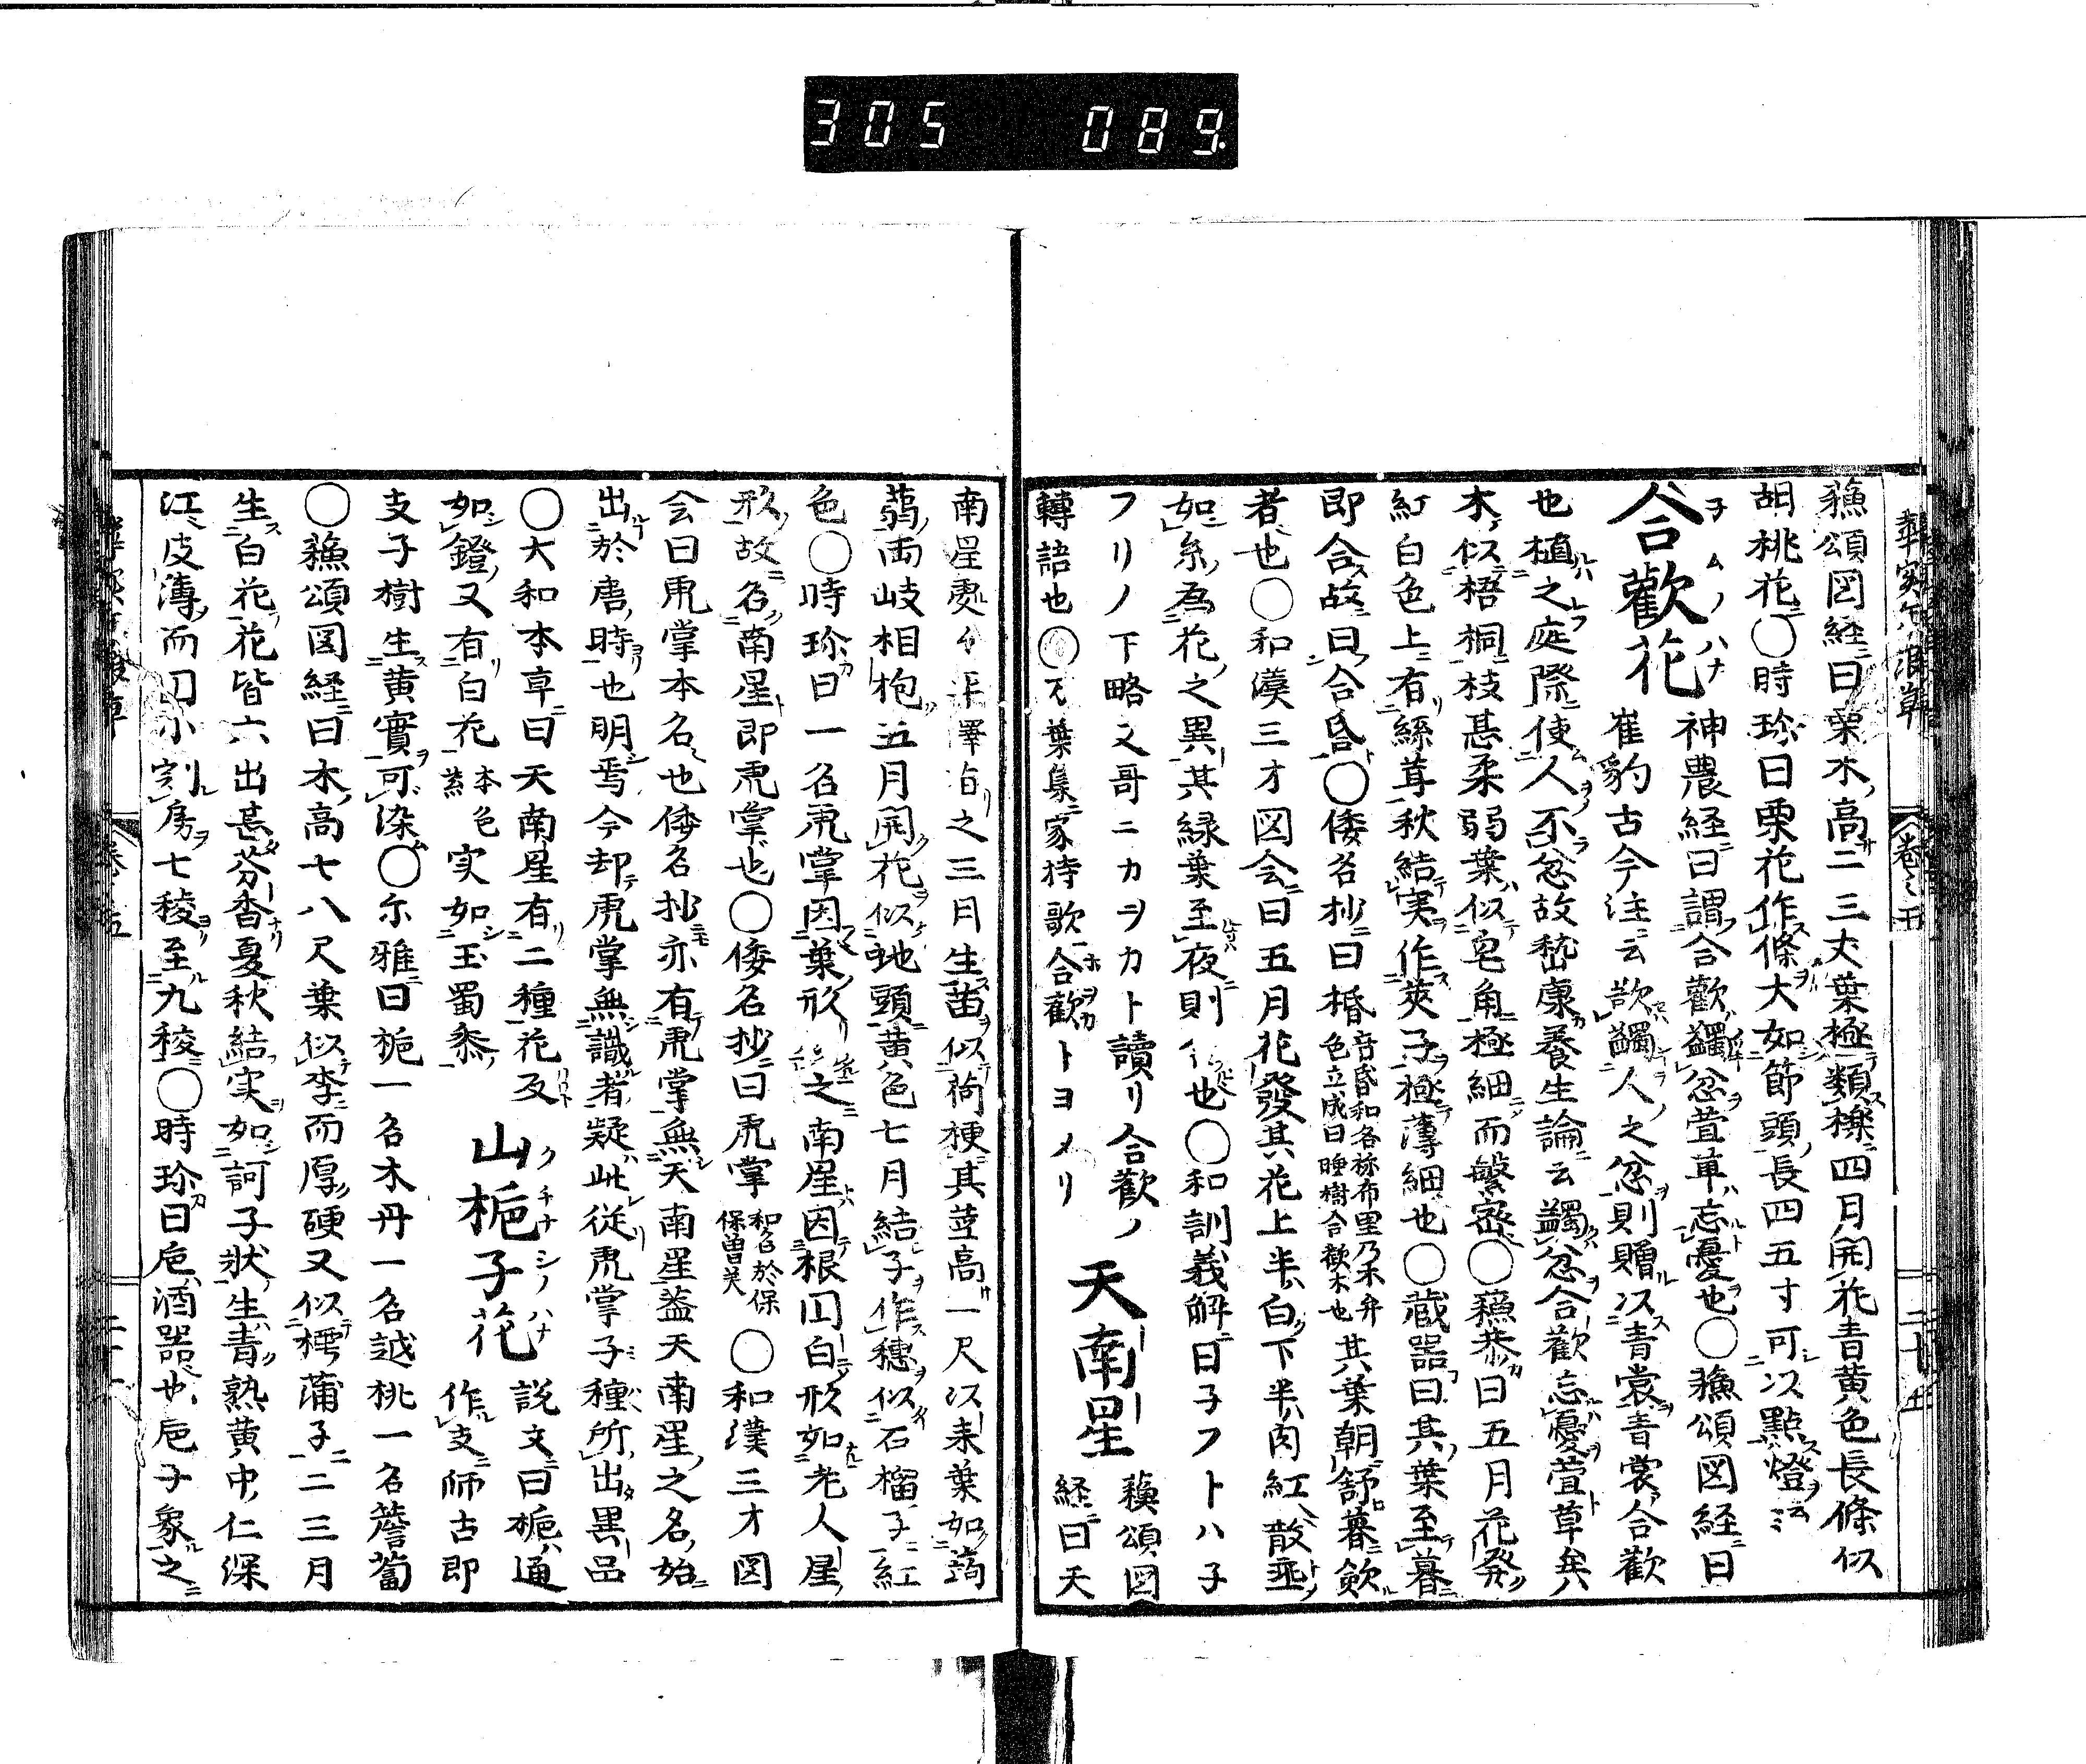 305 089.
蘓頌図経曰栗木高二三丈葉極類櫟四月開花青黄色長條似
胡桃花〇時珍曰栗花作條大如節頭長四五寸可以點燈云々
合歡花 子ムノハナ
神農経曰謂合歡蠲忿萱草忘憂也〇蘓頌図経曰
崔豹古今注云欲蠲人之忿則贈以青裳青裳合歡
也植之庭際使人不忿故嵆康養生論云蠲忿合歡忘憂萱草矣
木似梧桐枝甚柔弱葉似皂角極細而繁密〇蘓恭曰五月花発
紅白色上有絲茸秋結実作莢子極薄細也〇蔵噐曰其葉至暮
即合故曰合昏〇倭名抄曰棔
音昏和名祢布里乃木弁
色立成曰睡樹合歡木也
其葉朝舒暮歛
者也〇和漢三才図会曰五月花發其花上半白下半肉紅散垂
如糸為花之異其緑葉至夜則 也〇和訓義解曰子フトハ子
フリノ下略又哥ニカヲカト讀リ合歡ノ
轉語也〇万葉集家持歌合歡トヨメリ
天南星
蘓頌図
経曰天
南星処々平澤有之三月生苗似荷梗其莖高一尺以来葉如蒟
蒻両岐相抱五月開花似蛇頭黄色七月結子作穗似石榴子紅
色〇時珍曰一名虎掌因葉形 之南星因根囚白形如老人星
形故名南星即虎掌也〇倭名抄曰虎掌
和名於保
保曽美
〇和漢三才図
会曰虎掌本名也倭名抄亦有虎掌無天南星盖天南星之名始
出於唐時也明焉今却虎掌無識者疑此従虎掌子種所出異品
〇大和本草曰天南星有二種花及
如鐙又有白花
本色
実如玉蜀黍
山梔子花 クチナシノハナ
説文曰梔通
作支師古即
支子樹生黄實可染〇尓雅曰梔一名木丹一名越桃一名簷蔔
〇蘓頌図経曰木高七八尺葉似李而厚硬又似樗蒲子二三月
生白花花皆六出甚芬香夏秋結実如訶子狀生青熟黄中仁深
江皮薄而刀小割房七稜至九稜〇時珍曰巵酒噐也巵子象之